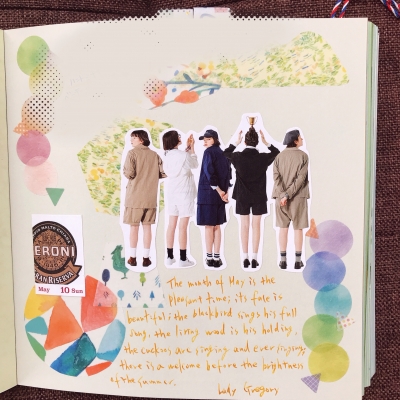 ERONI
RAN RISERVA
May 10 Sun
The month of May is the
pleasant time; its face is
beautiful; the blackbird sings his full
song, the living wood is his holding,
the cuckoos are singing and ever singing;
there is a welcome before the brightness
of the summer.
Lady Gregory